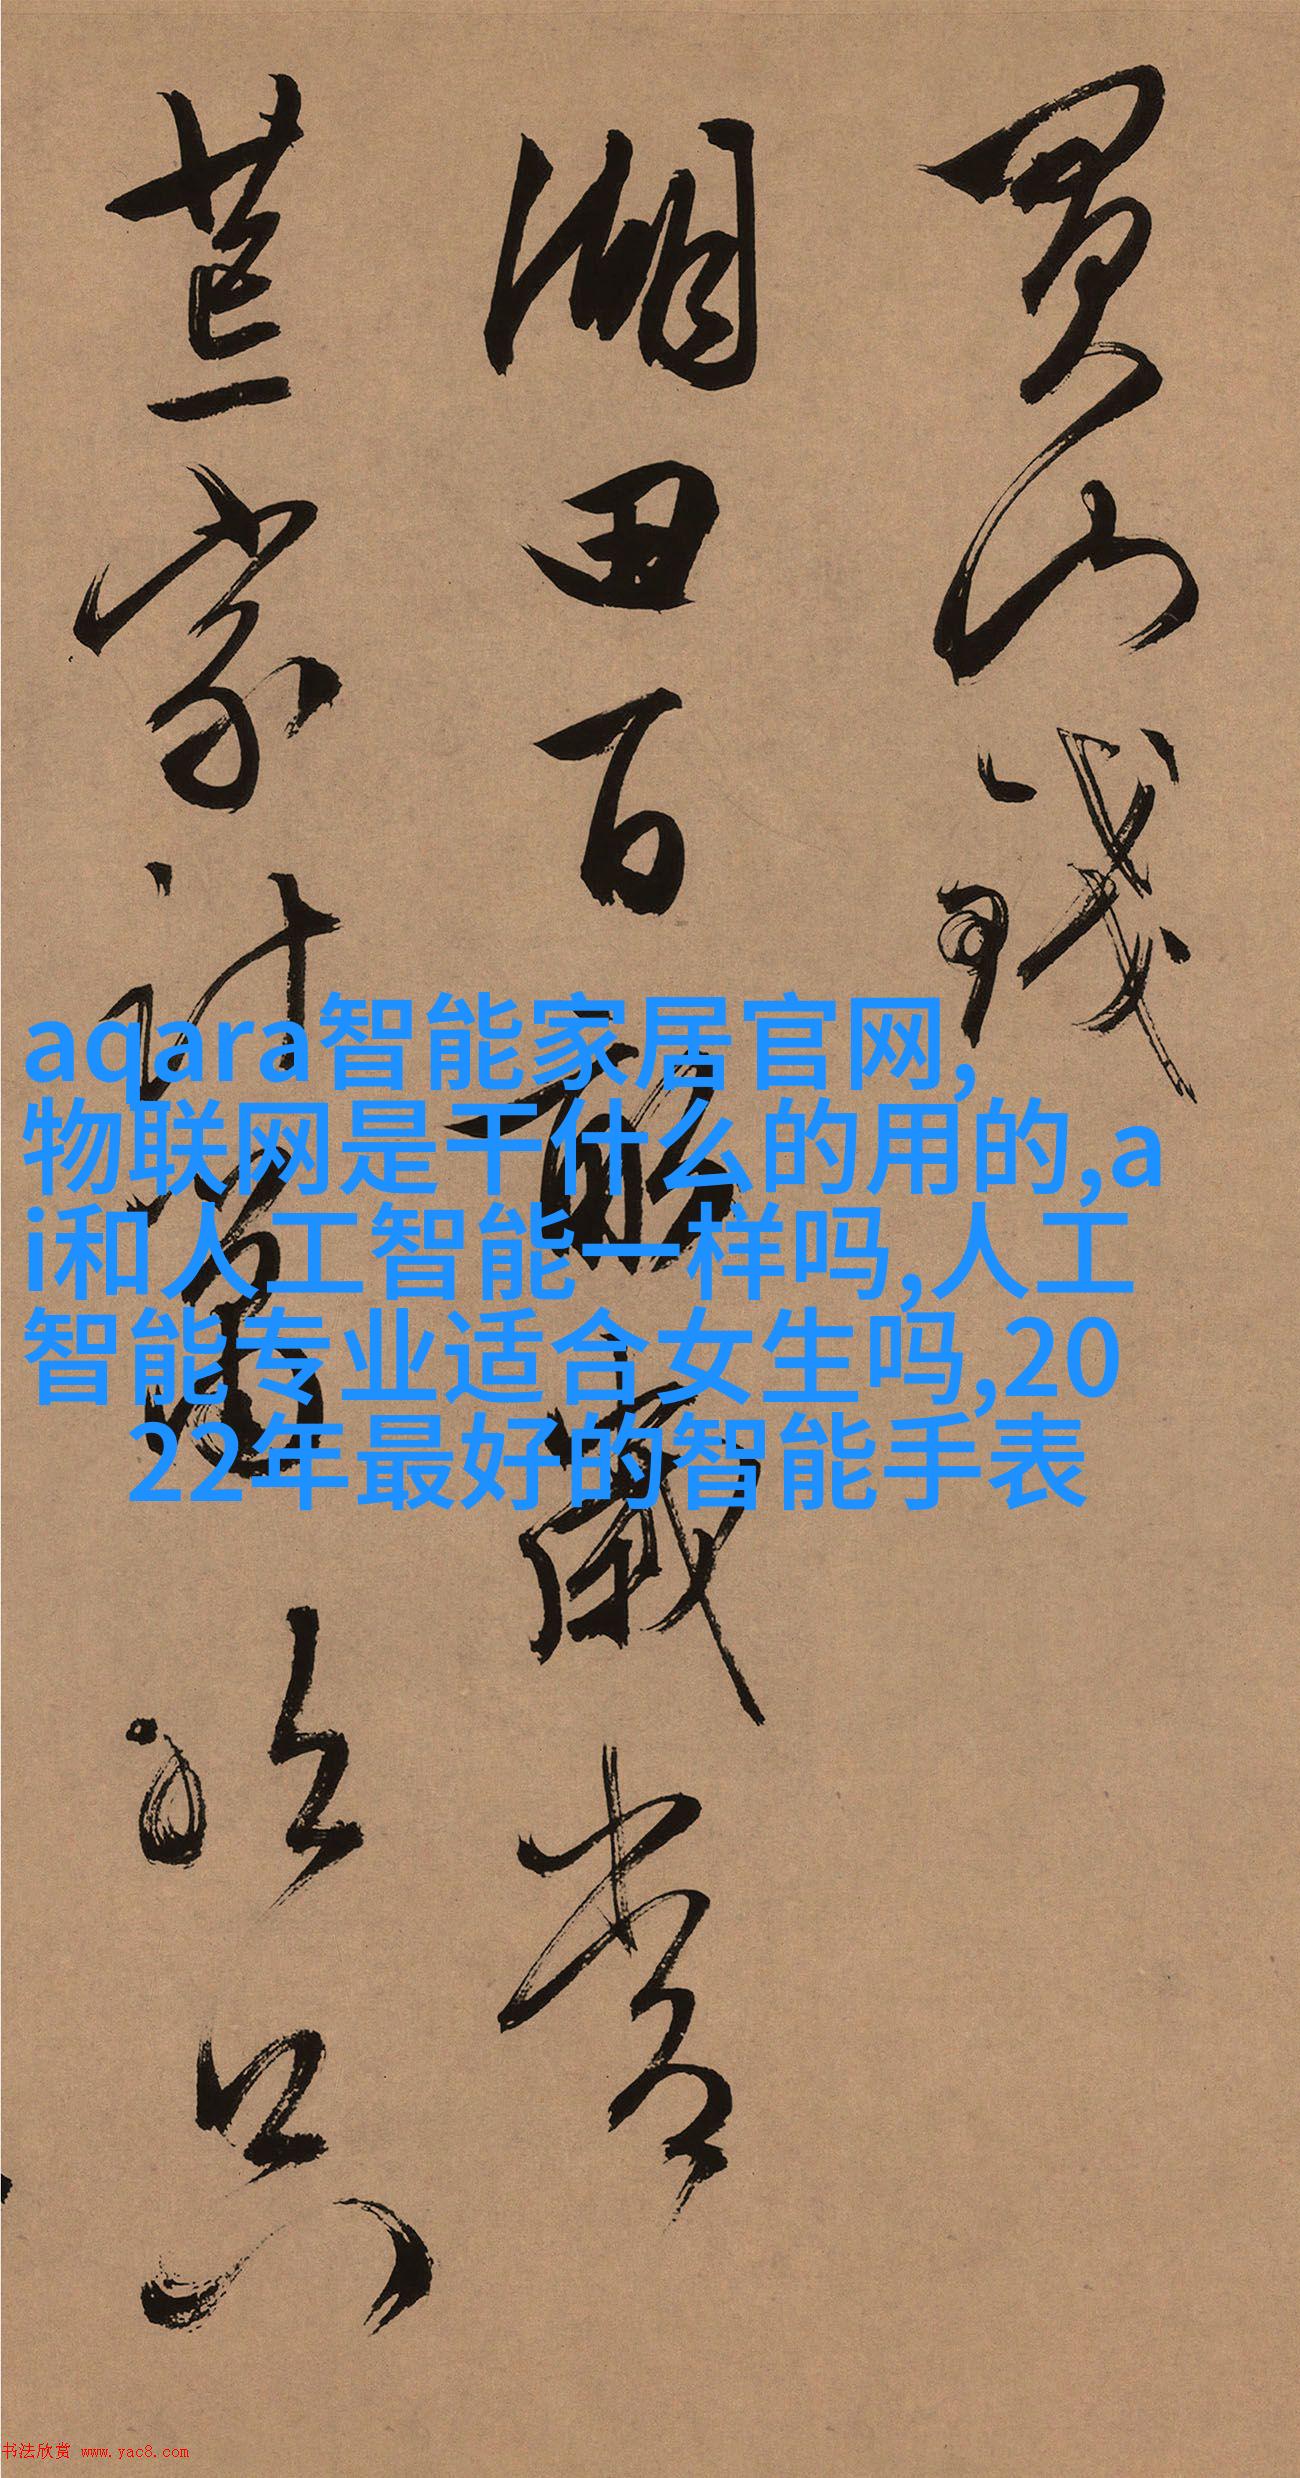 買山钱
湖田百畝歲常
荒一家計
只
aqara智能家居官网,
物联网是干什么的用的,a
i和人工智能一样吗,人工
智能专业适合女生吗,20
22年最好的智能手表
书法欣赏 www.yac8.com